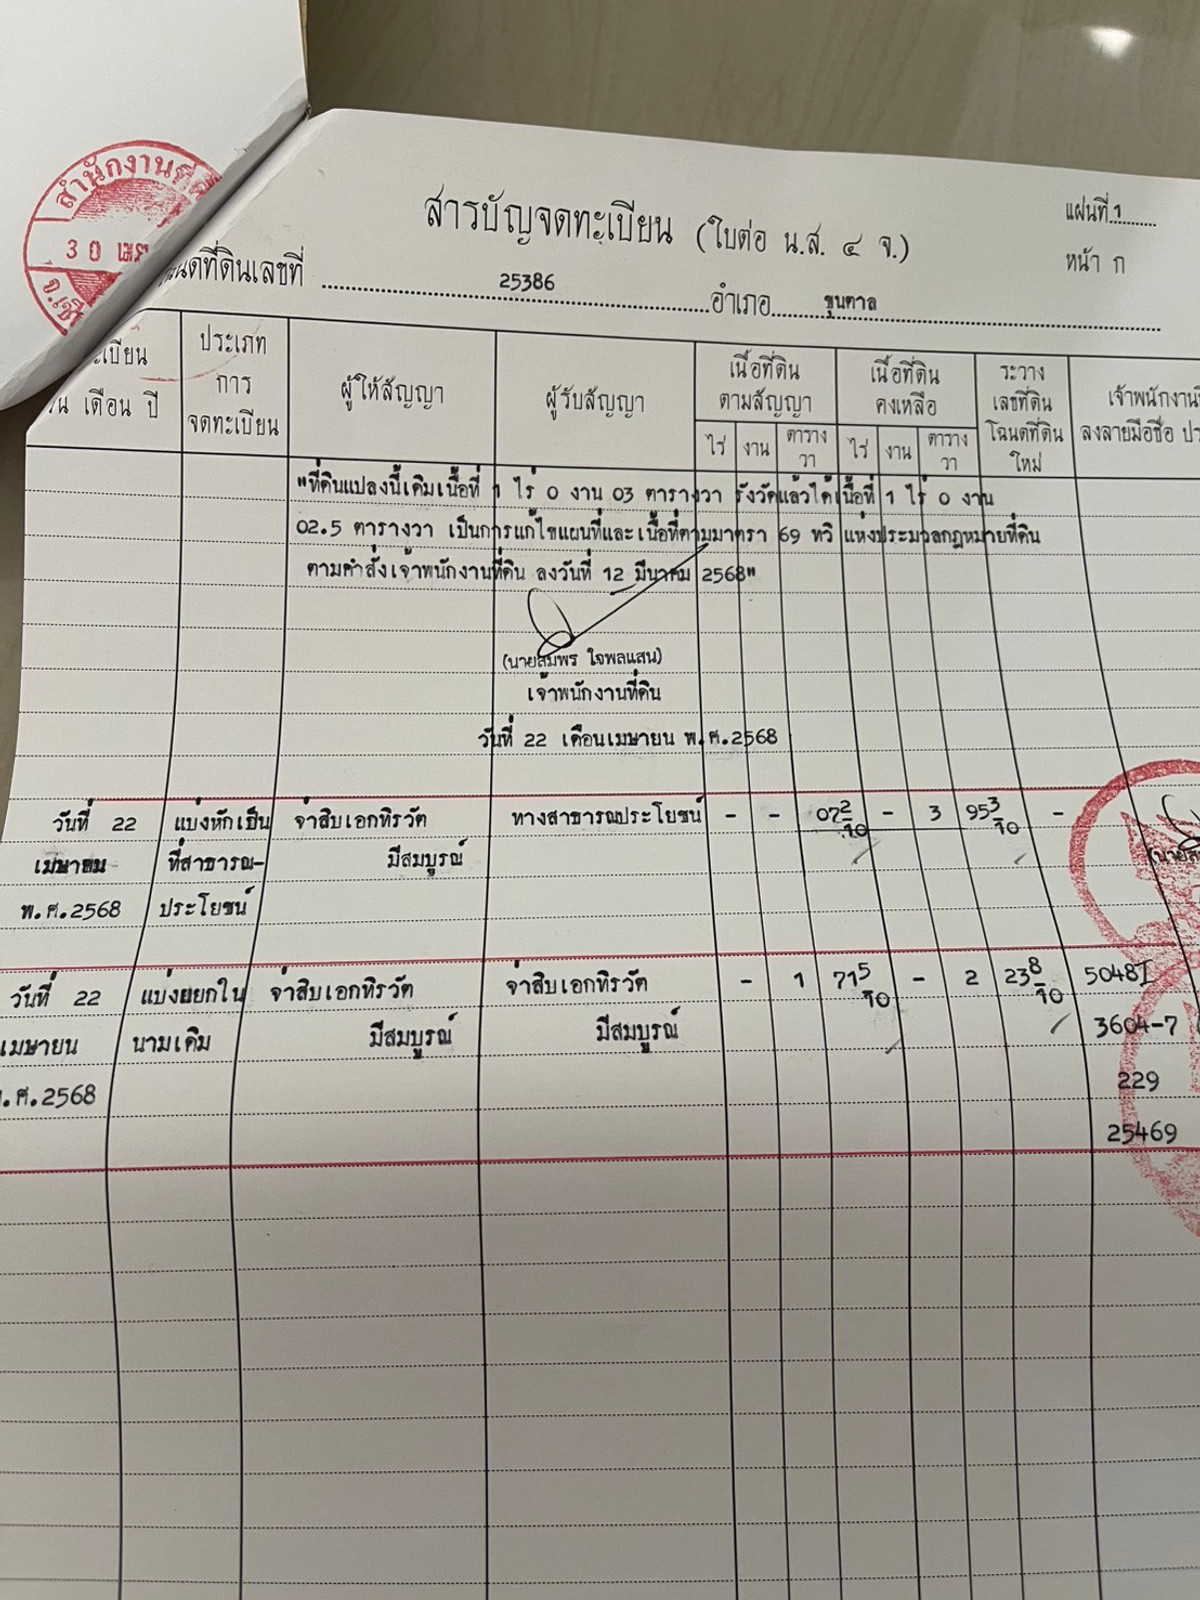 สำนักงานที่
30 เมษ
จ.เชี
สารบัญจดทะเบียน (ใบต่อ น.ส. ๔ จ.)
แผ่นที่ 1
หน้า ก
นดที่ดินเลขที่ 25386 อำเภอ ขุนตาล
ะเบียน
น เดือน ปี
ประเภท
การ
จดทะเบียน
ผู้ให้สัญญา
ผู้รับสัญญา
เนื้อที่ดิน
ตามสัญญา
ไร่ งาน ตาราง
วา
เนื้อที่ดิน
คงเหลือ
ไร่ งาน ตาราง
วา
ระวาง
เลขที่ดิน
โฉนดที่ดิน
ใหม่
เจ้าพนักงาน
ลงลายมือชื่อ ปร
"ที่ดินแปลงนี้เดิมเนื้อที่ 1 ไร่ 0 งาน 03 ตารางวา รังวัดแล้วได้เนื้อที่ 1 ไร่ 0 งาน
02.5 ตารางวา เป็นการแก้ไขแผนที่และเนื้อที่ตามมาตรา 69 ทวิ แห่งประมวลกฎหมายที่ดิน
ตามคำสั่งเจ้าพนักงานที่ดิน ลงวันที่ 12 มีนาคม 2568"
(นายสมพร ใจพลแสน)
เจ้าพนักงานที่ดิน
วันที่ 22 เดือนเมษายน พ.ศ.2568
วันที่ 22 แบ่งหักเป็น จ่าสิบเอกทิรวัต ทางสาธารณประโยชน์ - - 07 2/10 - 3 95 3/10 -
เมษายน ที่สาธารณ- มีสมบูรณ์
(นายส
พ.ศ.2568 ประโยชน์
วันที่ 22 แบ่งแยกใน จ่าสิบเอกทิรวัต จ่าสิบเอกทิรวัต - 1 71 5/10 - 2 23 8/10 5048I
เมษายน นามเดิม มีสมบูรณ์ มีสมบูรณ์ 3604-7
.ศ.2568 229
25469